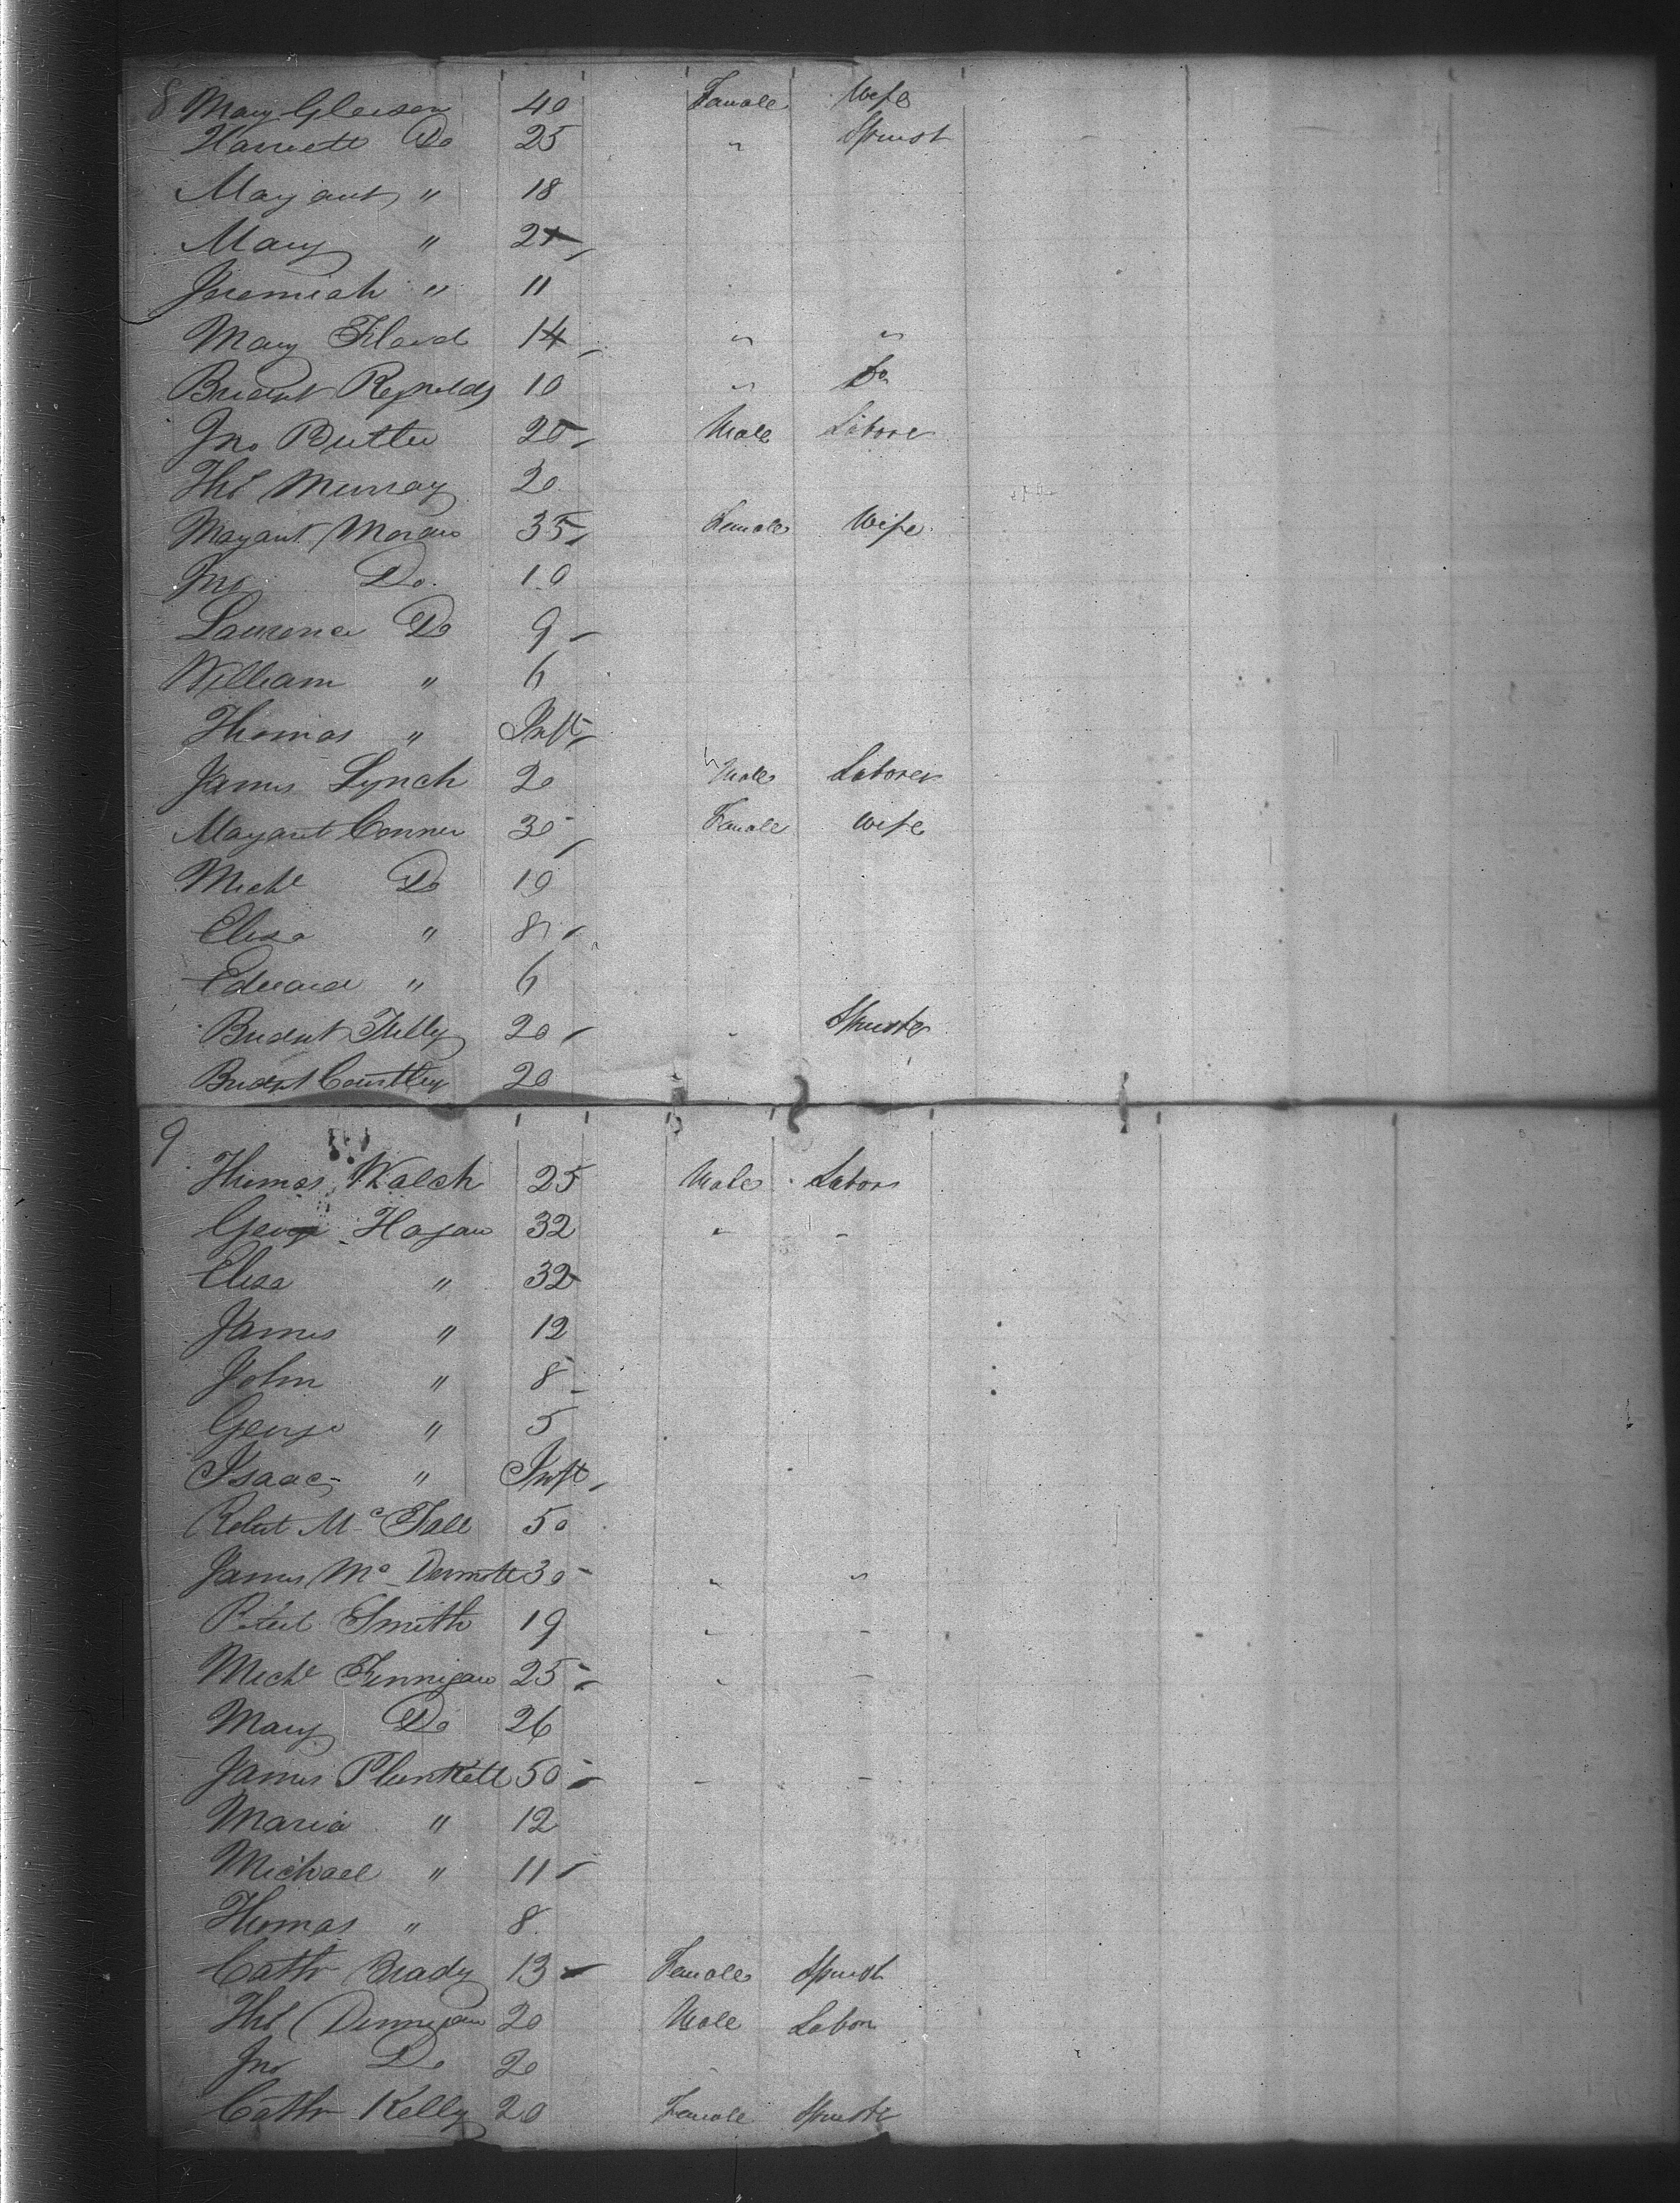 8 Mary Gleeson 40 Female Wife
Harriett Do 25 " Spinst
Margaret " 18
Mary " 21
Jeremiah " 11
Mary Flood 14 " "
Bridget Reynolds 10 " Do
Jno Butler 25 Male Laborer
Ths Murray 20
Margaret Moran 35 Female Wife
Jno Do. 10
Laurence Do 9
William " 6
Thomas " Inft
James Lynch 20 Male Laborer
Margaret Conner 30 Female Wife
Michl Do 10
Eliza " 8
Edward " 6
Bridget 20 " Spinster
Bridget 20
9
Thomas Walsh 25 Male Labor
George Hagan 32 " "
Eliza " 32
James " 12
John " 8
George " 5
Isaac " Inft
Robert Mc 50
James Mc Dermott 30 " "
Smith 19 " "
Michl Finnigan 25 " "
Mary Do 26
James Plunkett 50 " "
Maria " 12
Michael " 11
Thomas " 8
Cathr Brady 13 Female Spinst
Ths Dennigan 20 Male Labor
Jno Do 20
Cathr Kelly 20 Female Spinster